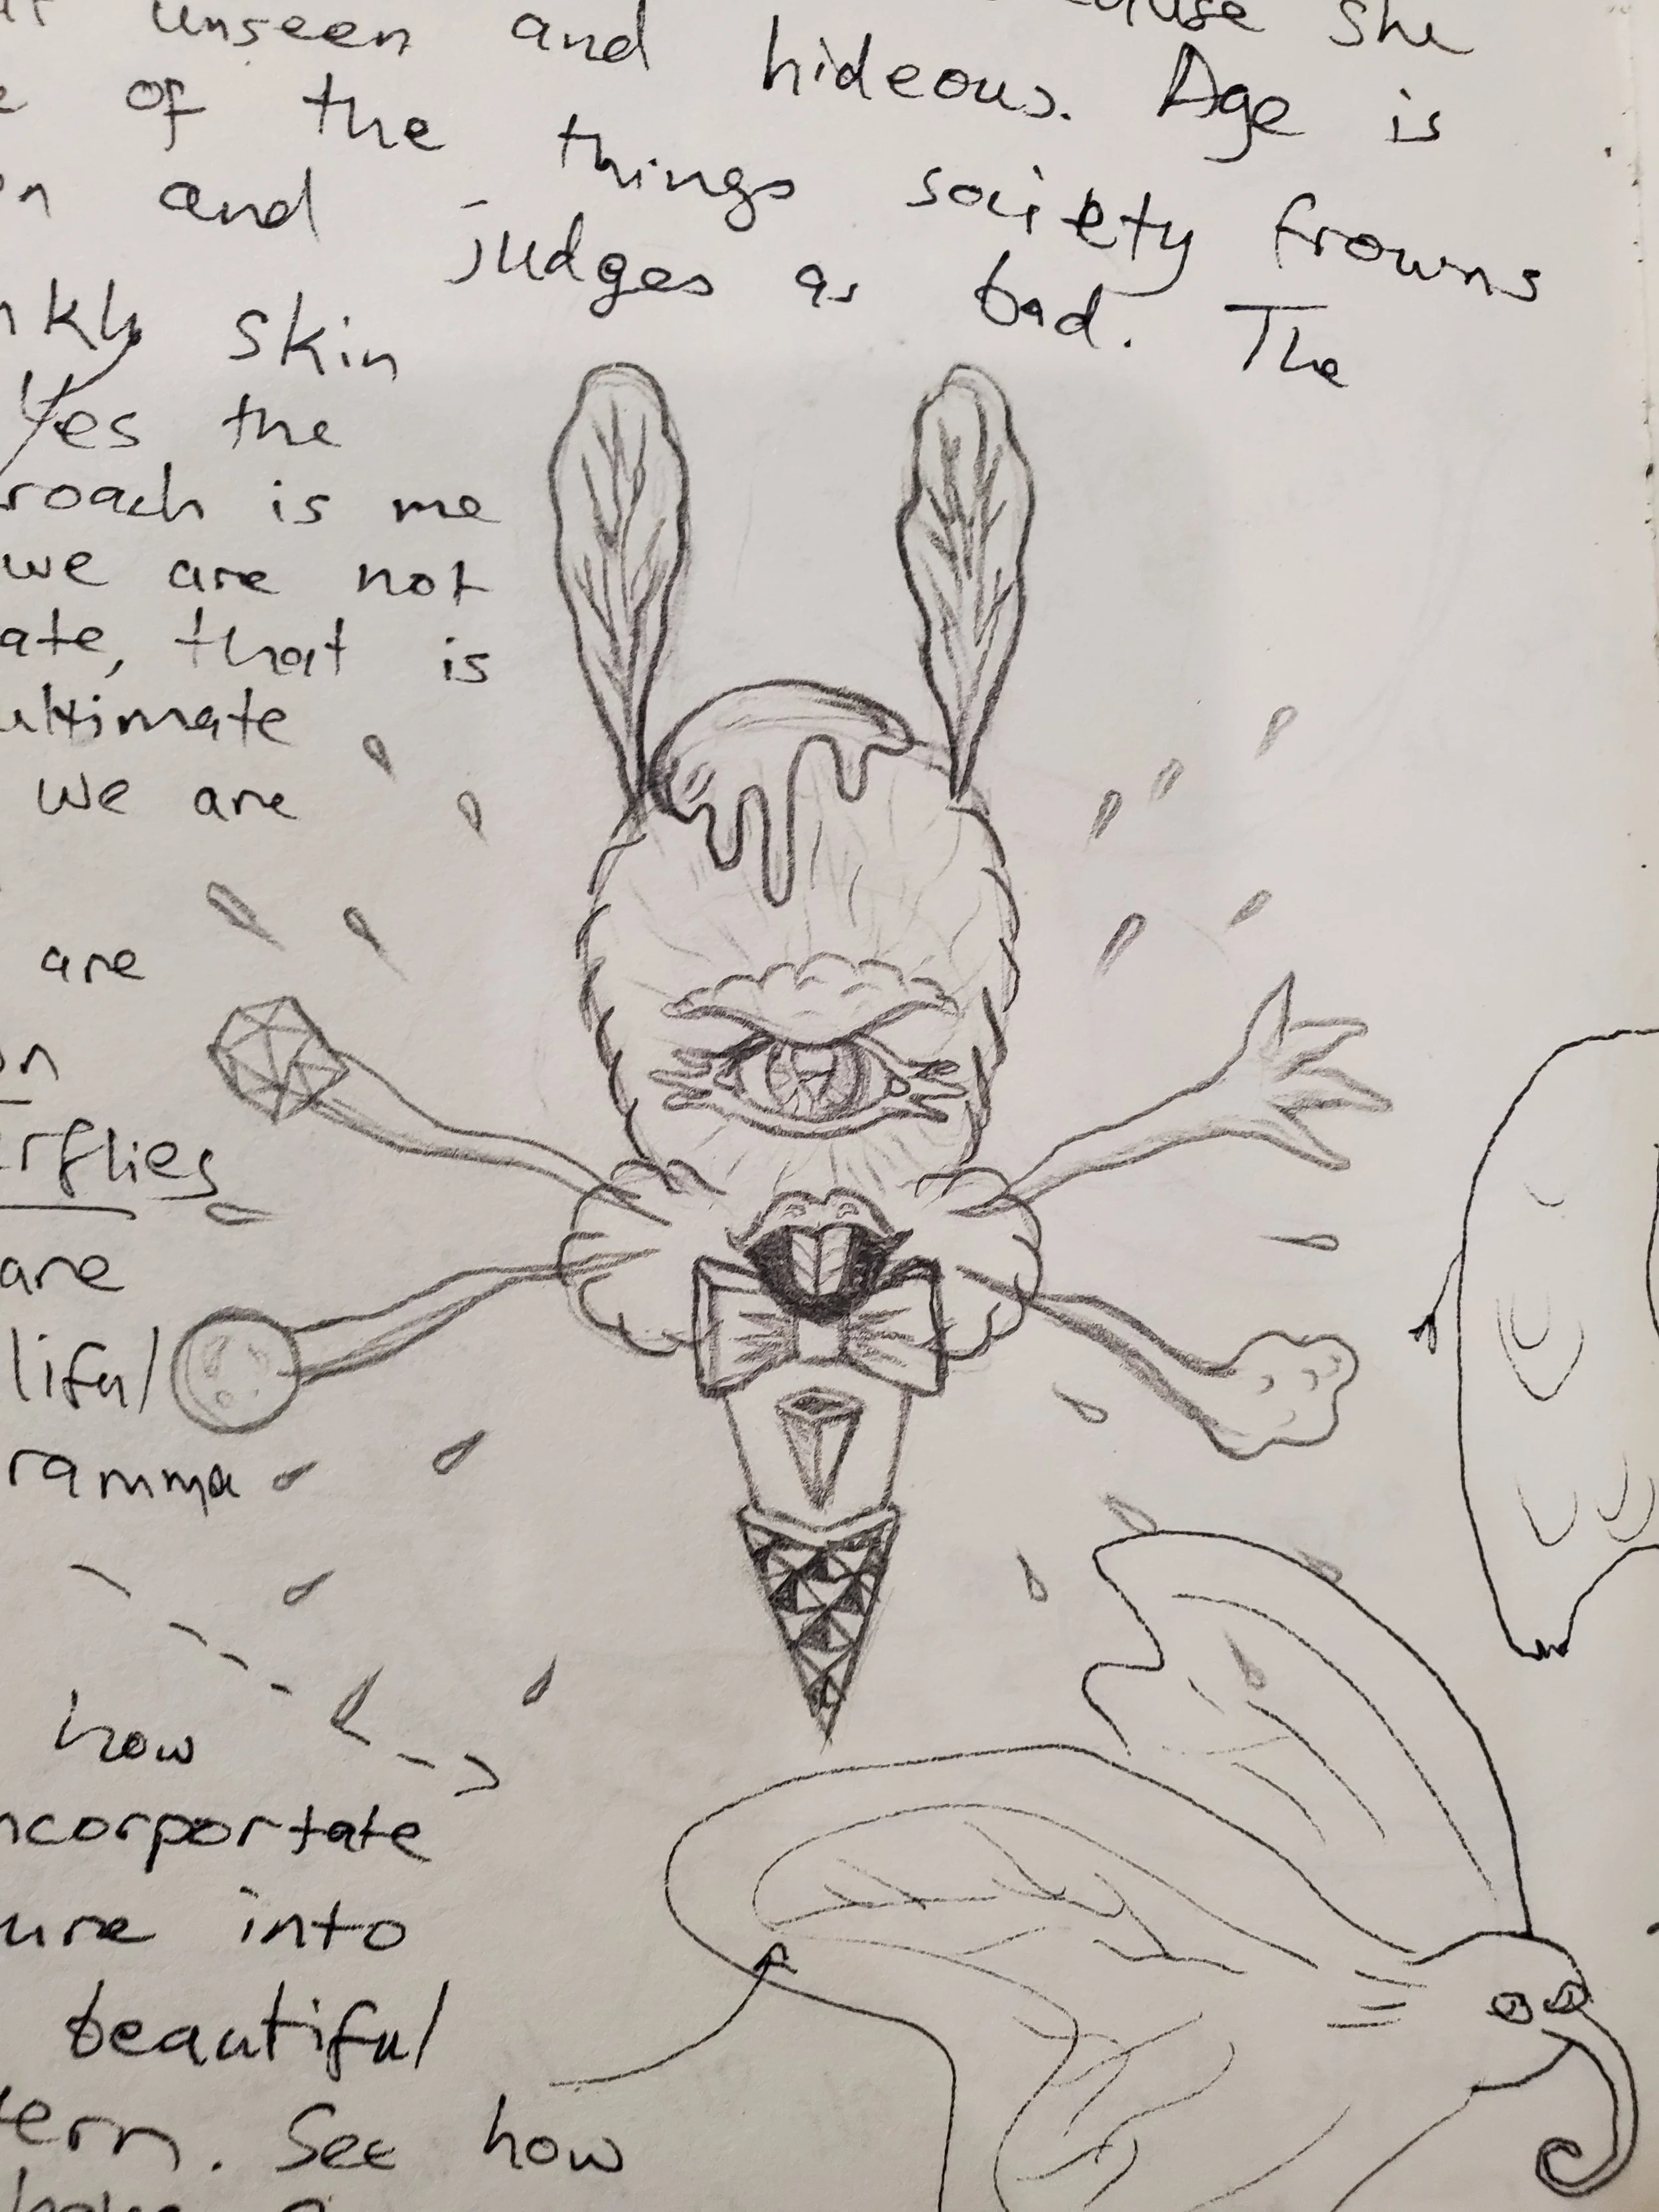 unseen and she
of the hideous. Age is
and things society frowns
judges as bad. The
skin
Yes the
roach is me
we are not
ate, that is
ultimate
we are
are
on
erflies
are
liful
ramma
how
ncorportate
ure into
beautiful
tern. See how